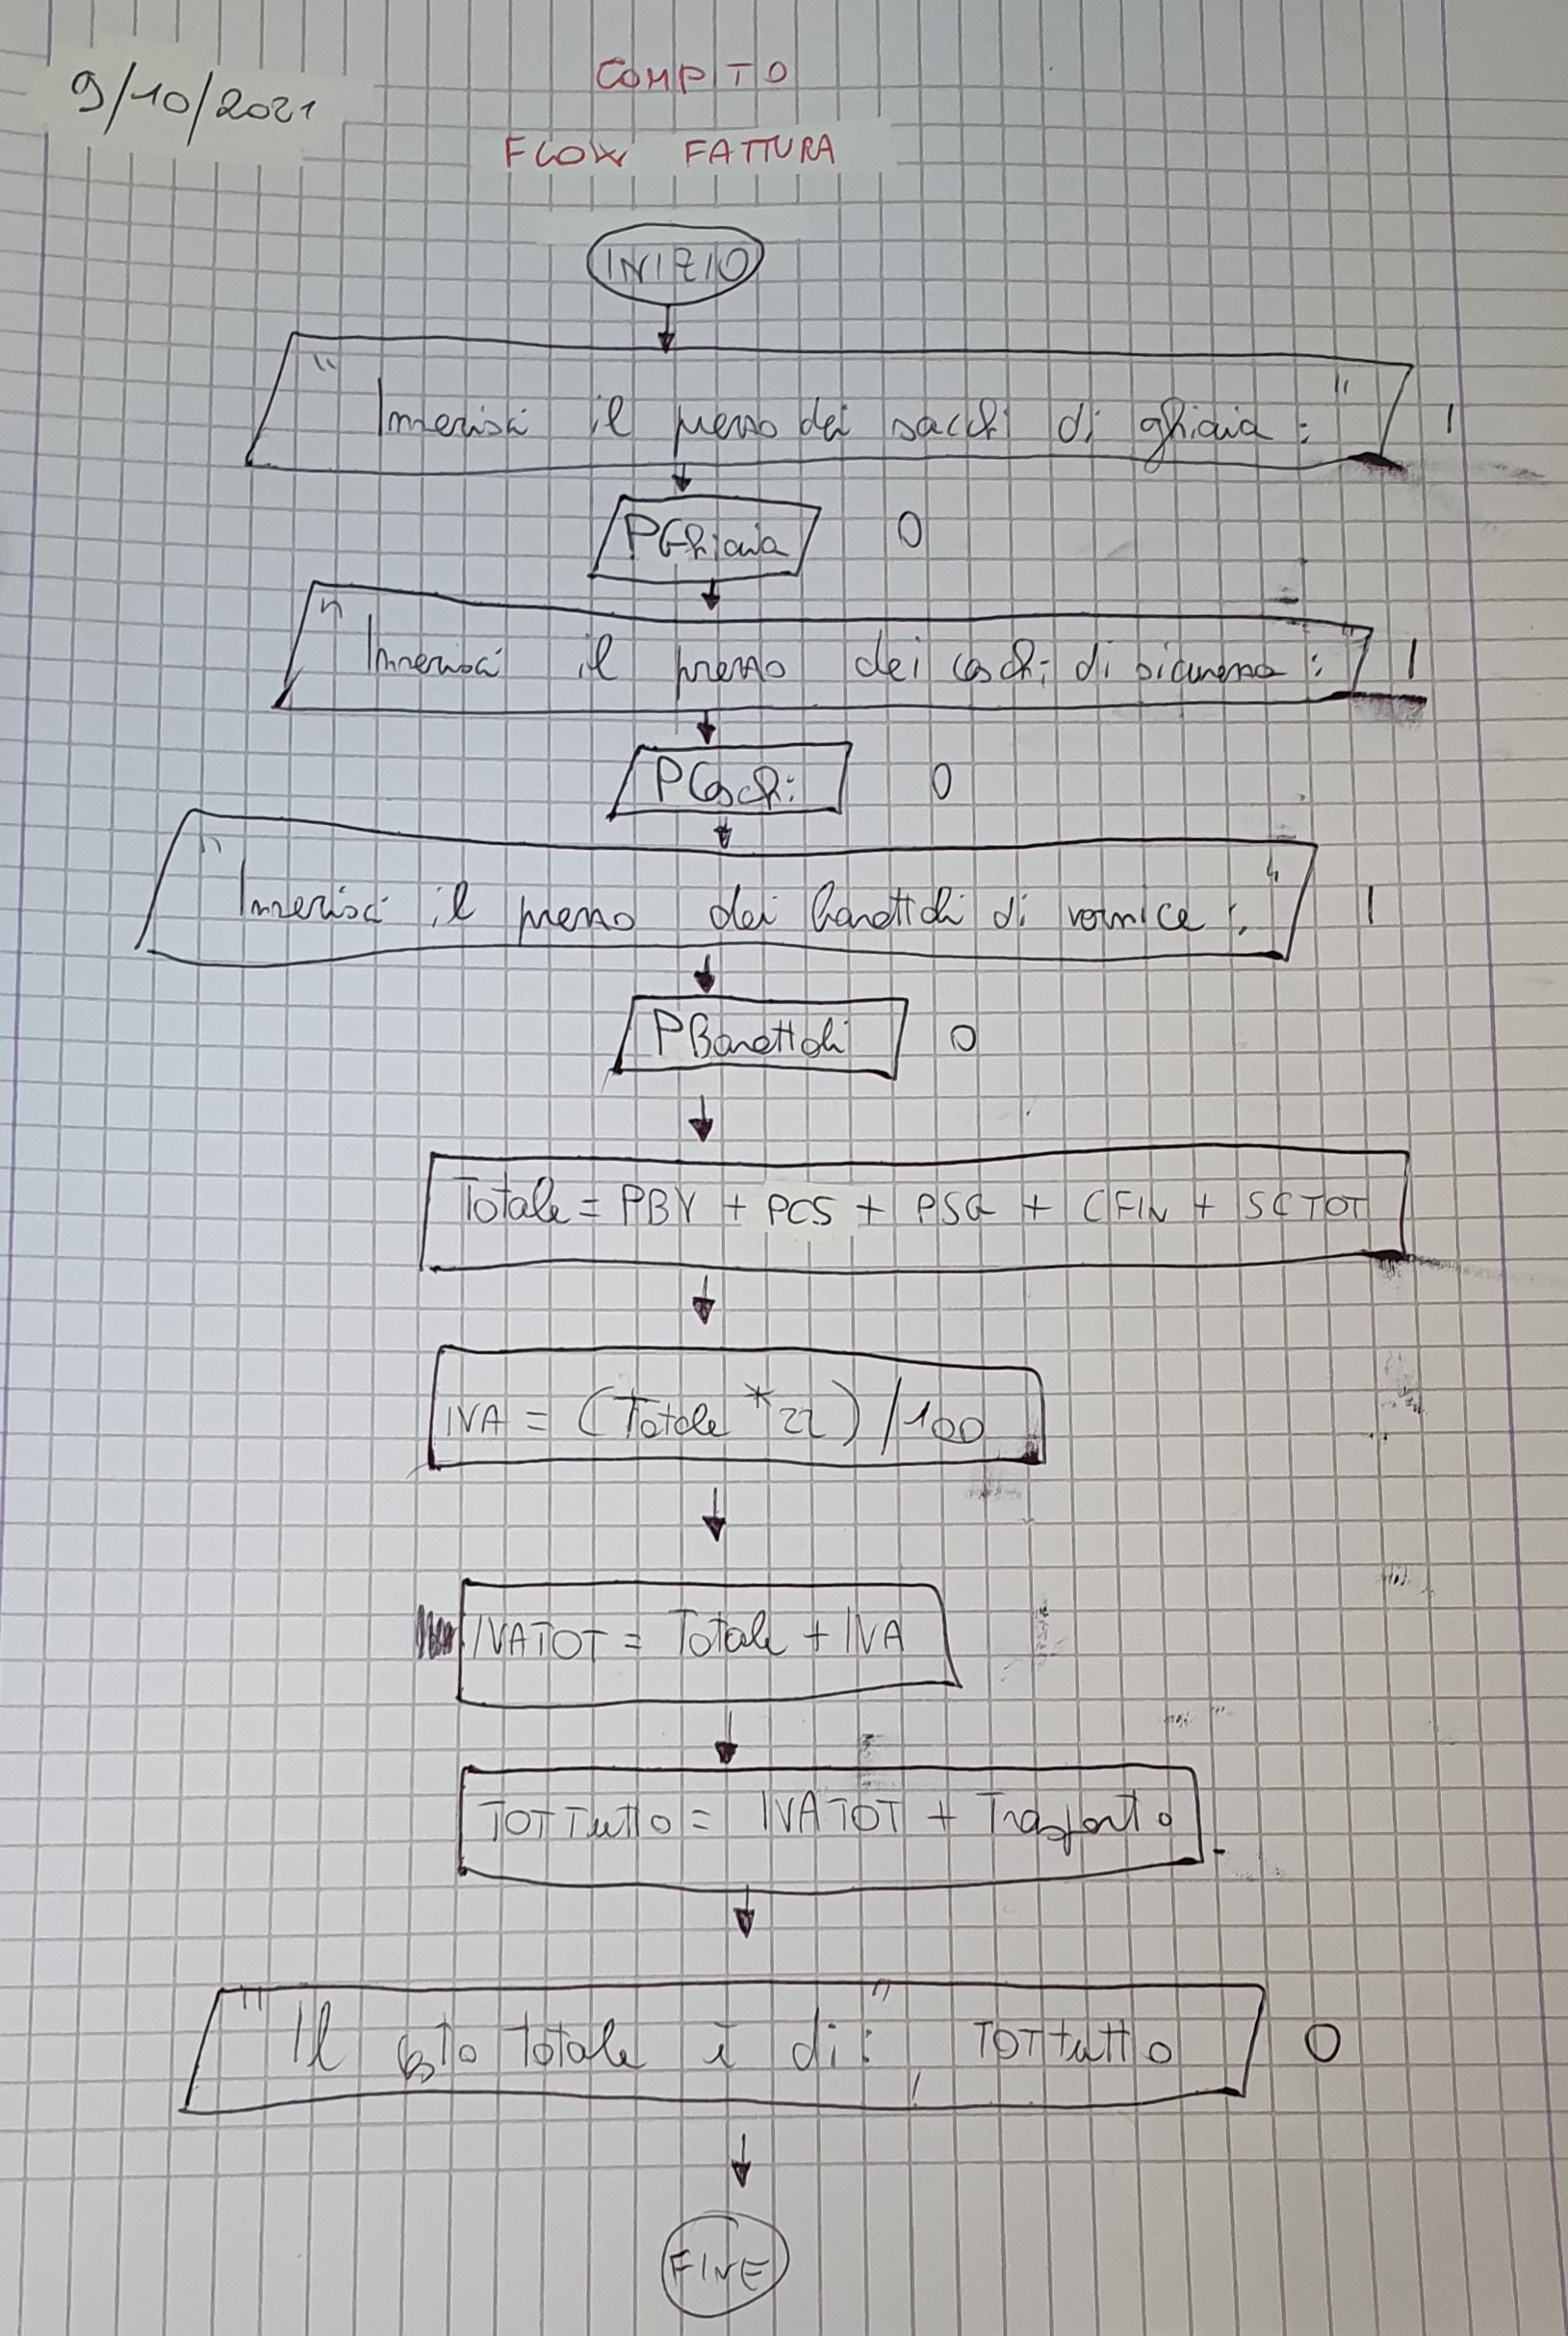 9/10/2021
COMPITO
FLOW FATTURA
INIZIO
"Inserisci il prezzo dei sacchi di ghiaia : " I
PGhiaia O
"Inserisci il prezzo dei caschi di sicurezza : " I
PCaschi O
"Inserisci il prezzo dei barattoli di vernice : " I
PBarattoli O
Totale = PBV + PCS + PSG + CFIN + SCTOT
IVA = (Totale * 22) / 100
IVATOT = Totale + IVA
TOTTutto = IVATOT + Trasporto
"Il costo totale è di : ", TOTtutto O
FINE